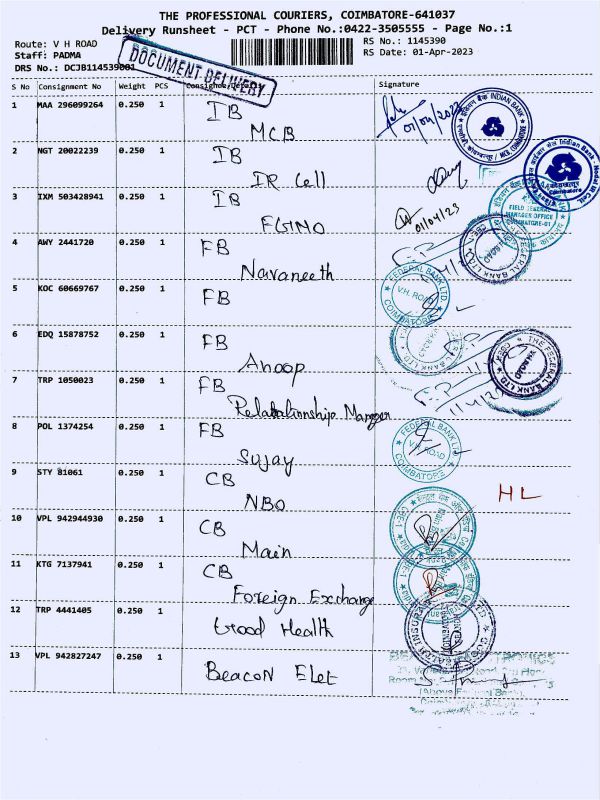 THE PROFESSIONAL COURIERS, COIMBATORE-641037
Delivery Runsheet - PCT - Phone No.:0422-3505555 - Page No.:1
Route: V H ROAD
RS No.: 1145390
Staff: PADMA
RS Date: 01-Apr-2023
DRS No.: DCJB114539001
DOCUMENT DELIVERY
S No Consignment No Weight PCS Consignee/Details Signature
1 MAA 296099264 0.250 1 IB
MCB
01/04/2023
2 NGT 20022239 0.250 1 IB
IR Cell
3 IXM 503428941 0.250 1 IB
FGMO
01/04/23
FIELD GENERAL
MANAGER OFFICE
4 AWY 2441720 0.250 1 FB
Navaneeth
5 KOC 60669767 0.250 1 FB
FEDERAL BANK LTD.
V.H. ROAD
COIMBATORE
6 EDQ 15878752 0.250 1 FB
Anoop
THE FEDERAL BANK LTD
7 TRP 1050023 0.250 1 FB
Relabationship Manager
8 POL 1374254 0.250 1 FB
Sujay
FEDERAL BANK LTD
V.H. ROAD
COIMBATORE
9 STY 81061 0.250 1 CB
NBO
HL
10 VPL 942944930 0.250 1 CB
Main
11 KTG 7137941 0.250 1 CB
Foreign Exchange
12 TRP 4441405 0.250 1 Good Health
13 VPL 942827247 0.250 1 Beacon Elet